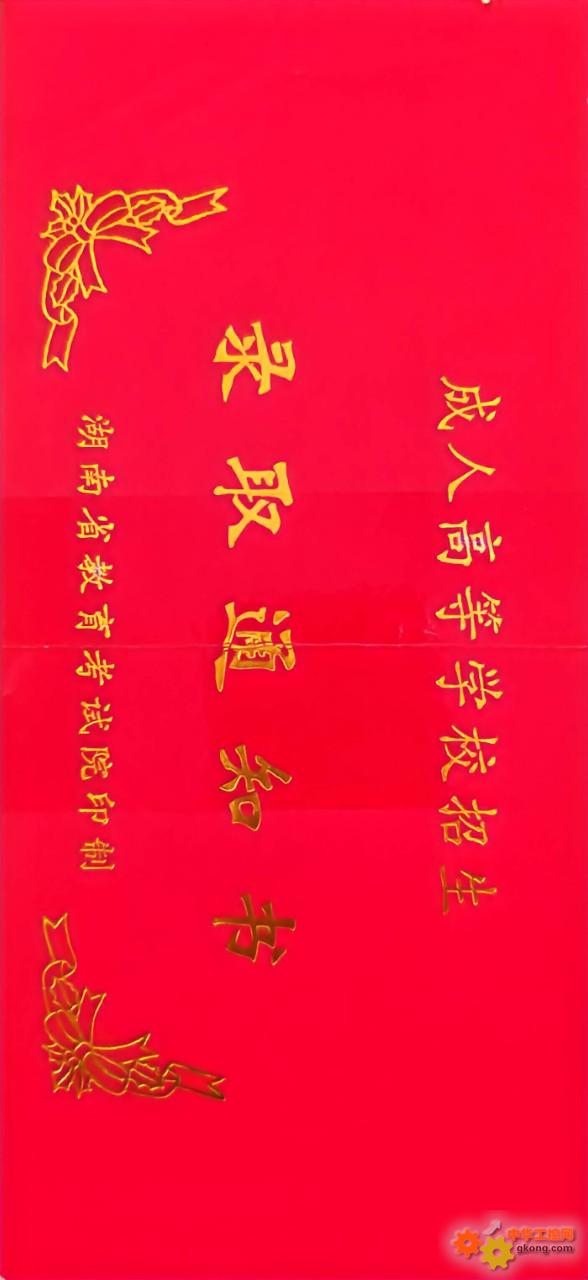 成人高等学校招生
录取通知书
湖南省教育考试院印制
中华工控网
gkong.com